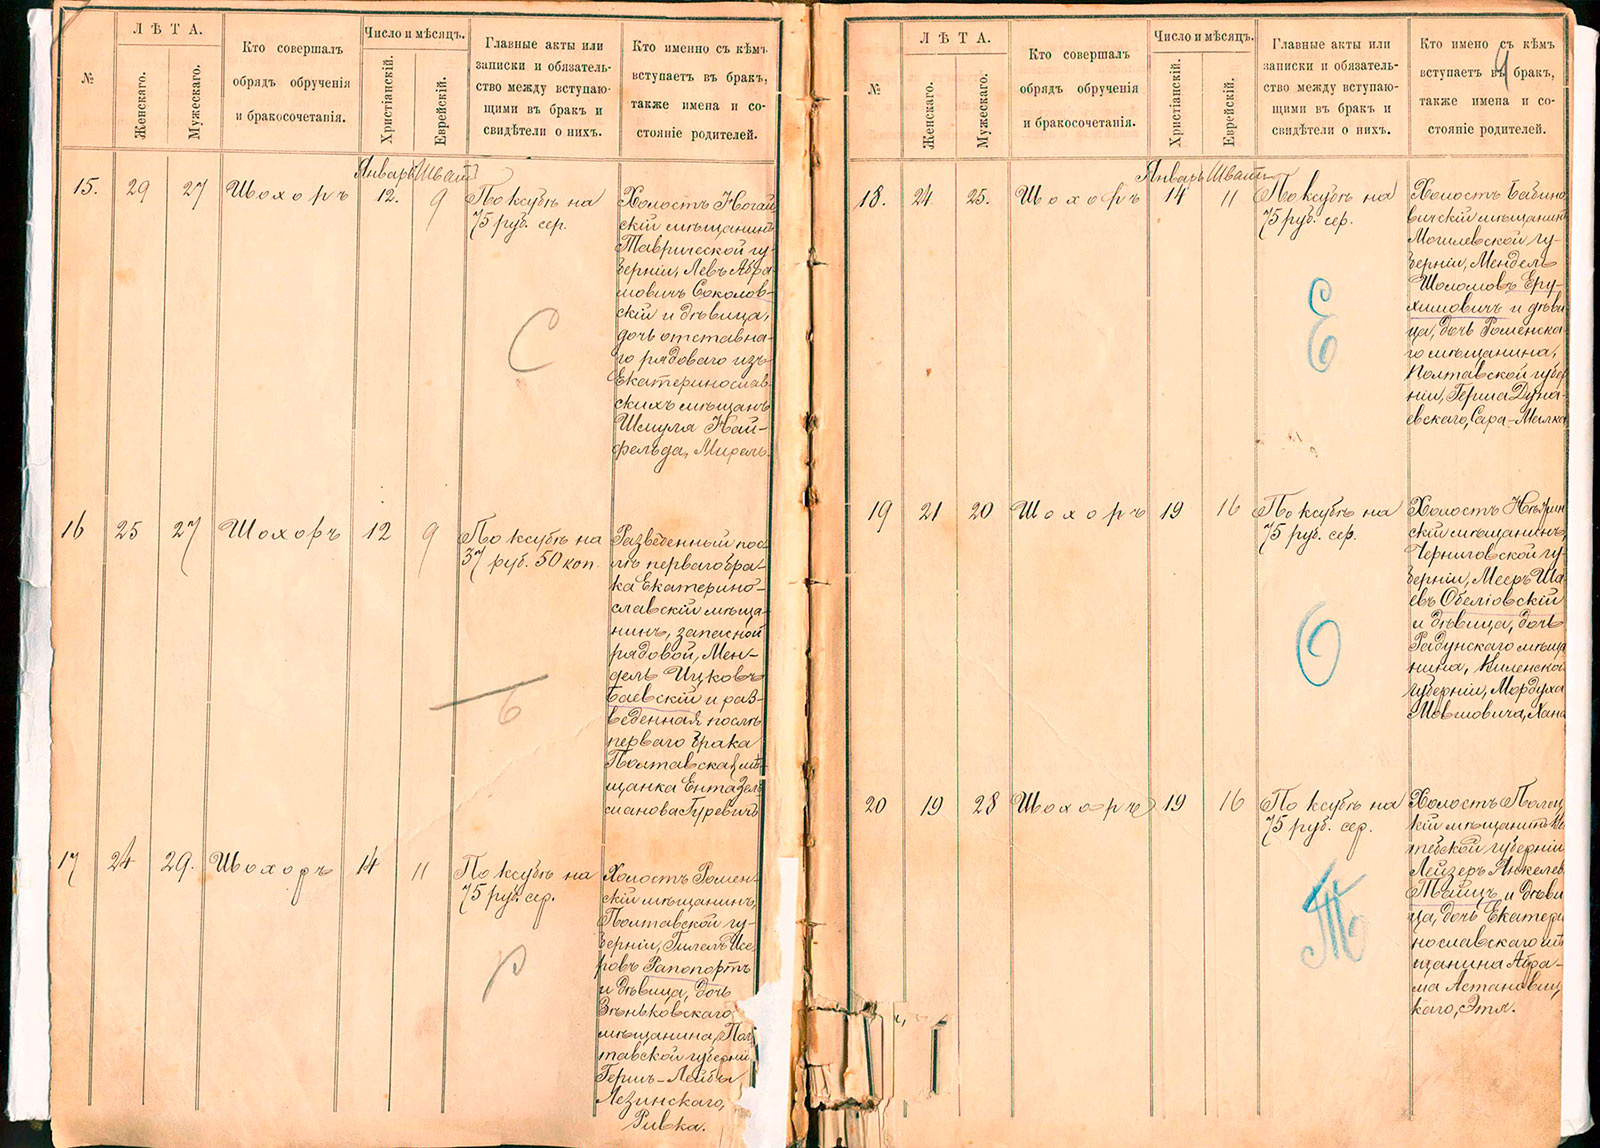 №
ЛѢТА.
Женскаго.
Мужескаго.
Кто совершалъ
обрядъ обрученія
и бракосочетанія.
Число и мѣсяцъ.
Христіанскій.
Еврейскій.
Главные акты или
записки и обязатель-
ство между вступаю-
щими въ бракъ и
свидѣтели о нихъ.
Кто именно съ кѣмъ
вступаетъ въ бракъ,
также имена и со-
стояніе родителей.
Январь Шватъ
15. 29 27 Шохоръ 12. 9
По ксубѣ на
75 руб. сер.
С
Холостъ Ногай
скій мѣщанинъ
Таврической гу-
берніи, Левъ Абра-
мовичъ Соколов-
скій и дѣвица,
дочь отставна-
го рядоваго изъ
Екатеринослав-
скихъ мѣщанъ
Шмуля Най-
фельда, Мирель.
16 25 27 Шохоръ 12 9
По ксубѣ на
37 руб. 50 коп.
Б
Разведенный пос-
лѣ перваго бра-
ка Екатерино-
славскій мѣща-
нинъ, запасной
рядовой, Мен-
дель Ицковъ
Баевскій и раз-
веденная послѣ
перваго брака
Полтавская мѣ-
щанка Ента Зель
Гуревичъ
17 24 29. Шохоръ 14 11
По ксубѣ на
75 руб. сер.
Р
Холостъ Ромен-
скій мѣщанинъ,
Полтавской гу-
берніи, Гилель Исе
ровъ Рапопортъ
и дѣвица, дочь
Зѣньковскаго
мѣщанина, Пол
тавской губерніи
Герша-Лейбы
Лезинскаго,
Ривка.
9
№
ЛѢТА.
Женскаго.
Мужескаго.
Кто совершалъ
обрядъ обрученія
и бракосочетанія.
Число и мѣсяцъ.
Христіанскій.
Еврейскій.
Главные акты или
записки и обязатель-
ство между вступаю-
щими въ бракъ и
свидѣтели о нихъ.
Кто имено съ кѣмъ
вступаетъ въ бракъ,
также имена и со-
стояніе родителей.
Январь Шватъ
18. 24 25. Шохоръ 14 11
По ксубѣ на
75 руб. сер.
Е
Холостъ Бабино
вичскій мѣщанинъ
Могилевской гу-
берніи, Мендель
Шоломовъ Еру-
химовичъ и дѣви
ца, дочь Роменска
го мѣщанина,
Полтавской губер
ніи, Герша Дуна-
евскаго, Сара-Милка
19 21 20 Шохоръ 19 16
По ксубѣ на
75 руб. сер.
О
Холостъ Нѣжин
скій мѣщанинъ,
Черниговской гу-
берніи, Мееръ Ша-
евъ Обеліовскій
и дѣвица, дочь
Радунскаго мѣща
нина, Виленской
губерніи, Мордуха
Мовшовича, Хана
20 19 28 Шохоръ 19 16
По ксубѣ на
75 руб. сер.
Т
Холостъ Полоц
кій мѣщанинъ Ви
тебской губерніи
Лейзеръ Янкелев
Тайцъ и дѣви
ца, дочь Екатери
нославскаго мѣ
щанина Абра-
ма Астановиц
каго, Этля.